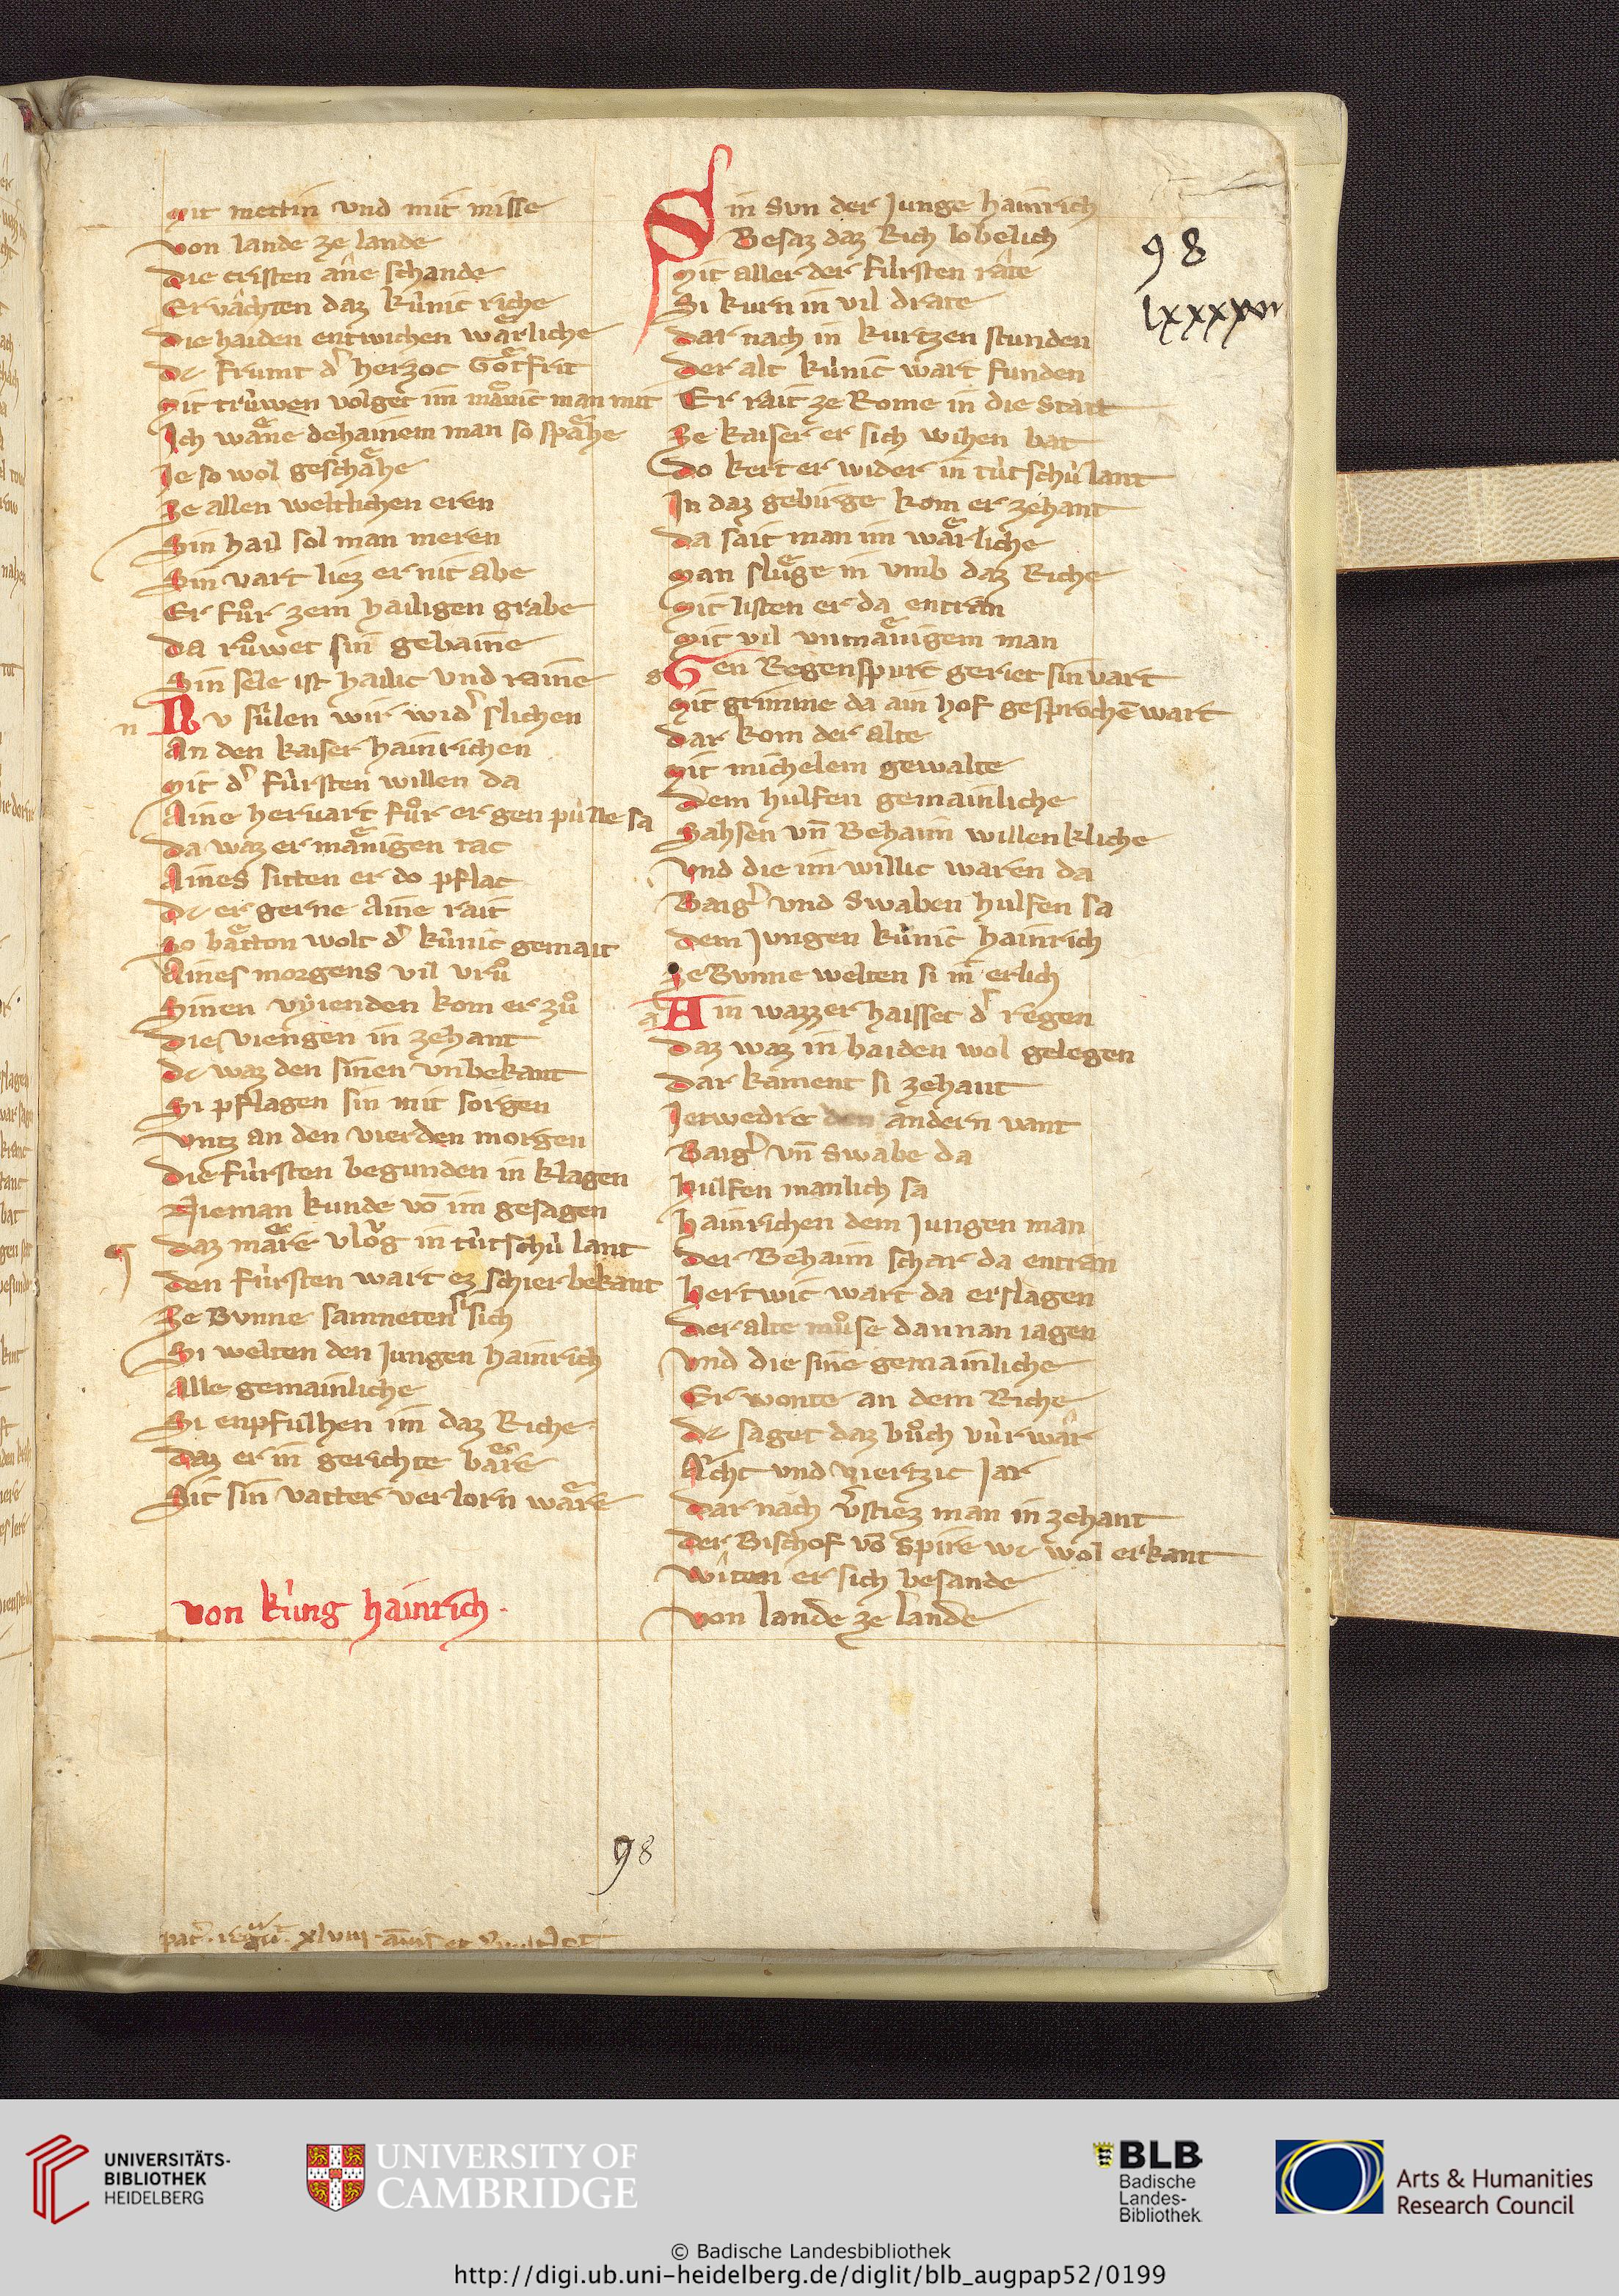 mit mettin vnd mit misse
von lande ze lande
die cristen ane schande
Ervachten daz künic riche
die haiden entwichen wärliche
dc frumt d' herzoc Gotfrit
mit trüwen volget im mänic man mit
Ich wäne dehainem man so spähe
Ie so wol geschähe
Ze allen weltlichen eren
Sin hail sol man meren
Sin vart liez er nit abe
Er fůr zem hailigen grabe
da růwet sin gebaine
Sin sele ist hailic vnd raine
n Nv sülen wir wid' slichen
An den kaiser hainrichen
mit d' fürsten willen da
Aine hervart fůr er gen pülle sa
da waz er mänigen tac
Aines sitten er do pflac
dc er gerne aine rait
So bätton wolt d' künic gemait
Aines morgens vil vrů
Sinen vyienden kom er zů
die viengen in zehant
dc waz den sinen vnbekant
Si pflagen sin mit sorgen
vntz an den vierden morgen
die fürsten begunden in klagen
Nieman kunde vō im gesagen
daz märe vlog in tütschü lant
den fürsten wart ez schier bekant
Ze Bvnne samneten si sich
Si welten den Jungen hainrich
Alle gemainliche
Si enpfulhen im daz Riche
daz er in gerichte bäre
Sit sin vatter verlorn wäre
von küng hainrich.
Sin svn der Junge hainrich
Besaz daz Rich lobelich
mit aller der fürsten râte
Si kurn in vil drate
dar nach in kurtzen stunden
der alt künic wart funden
Er rait ze Rome in die statt
Ze kaiser er sich wihen bat
do kert er wider in tütschü lant
In daz gebürge kom er zehant
da sait man im wärliche
man slüge in vmb daz Riche
mit listen er da entran
mit vil vnmänigem man
g Gen Regenspurt geriet sin vart
mit grimme da ain hof gesprochē wart
dar kom der alte
mit michelem gewalte
dem hulfen gemainliche
Sahsen vn̄ Behaim willenkliche
vnd die im willic waren da
Baig' vnd Swaben hulfen sa
dem Jvngen künic hainrich
Ze Bvnne welten si in erlich
a Ain wazzer haisset d' regen
daz waz in baiden wol gelegen
dar kament si zehant
Jetwedre den andern vant
Baig' vn̄ Swabe da
hulfen manlich sa
hainrichen dem Jungen man
der Behaim schar da entran
hertwic wart da erslagen
der alte můse dannan iagen
vnd die sine gemainliche
Er wonte an dem Riche
dc saget daz bůch vür war
Acht vnd viertzic Jar
dar nach v'stiez man in zehant
der Bischof vō Spire wc wol erkant
witon er sich besande
von lande ze lande
98
lxxxxviii
98
UNIVERSITÄTS-
BIBLIOTHEK
HEIDELBERG
UNIVERSITY OF
CAMBRIDGE
BLB
Badische
Landes-
Bibliothek
Arts & Humanities
Research Council
© Badische Landesbibliothek
http://digi.ub.uni-heidelberg.de/diglit/blb_augpap52/0199